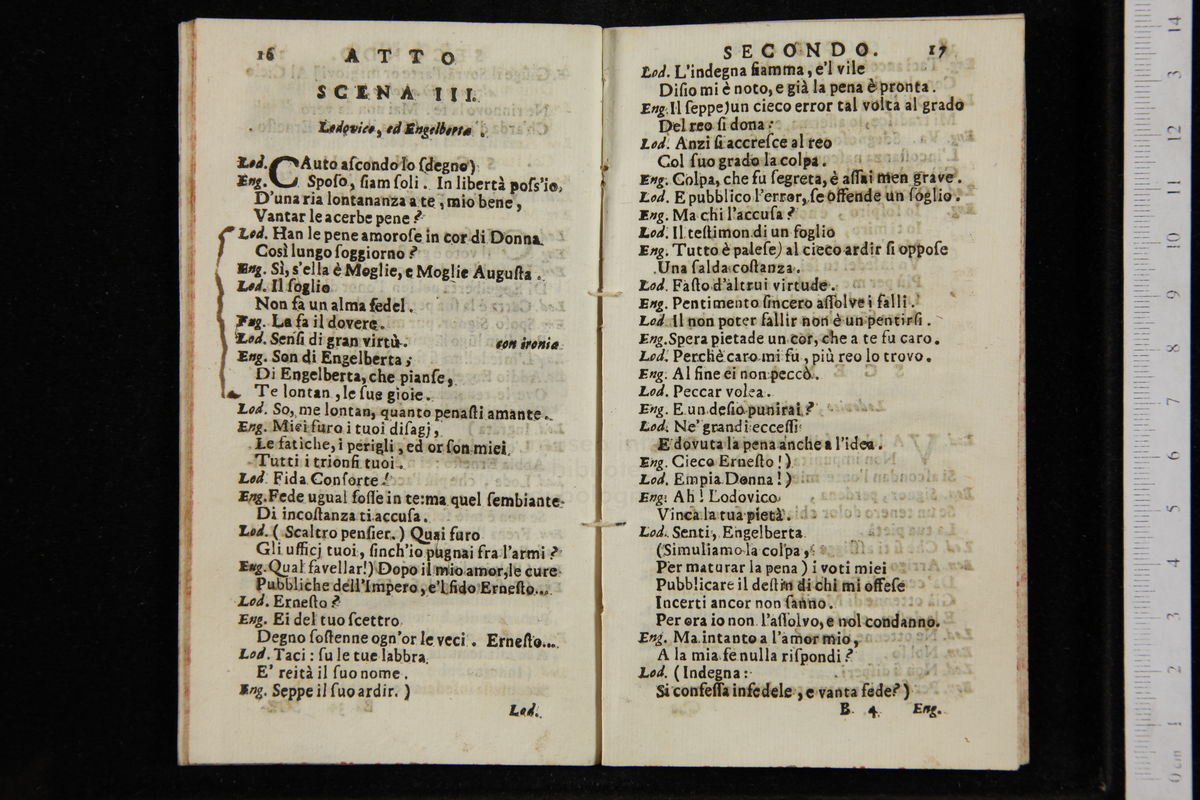 16 ATTO
SCENA III.
Lodovico, ed Engelberta.
Lod. CAuto ascondo lo sdegno)
Eng. Sposo, siam soli. In libertà poss'io,
D'una ria lontananza a te, mio bene,
Vantar le acerbe pene?
Lod. Han le pene amorose in cor di Donna
Così lungo soggiorno?
Eng. Sì, s'ella è Moglie, e Moglie Augusta.
Lod. Il soglio
Non fà un alma fedel.
Eng. La fa il dovere.
Lod. Sensi di gran virtù. con ironia
Eng. Son di Engelberta;
Di Engelberta, che pianse,
Te lontan, le sue gioie.
Lod. So, me lontan, quanto penasti amante.
Eng. Miei furo i tuoi disagj,
Le fatiche, i perigli, ed or son miei
Tutti i trionfi tuoi.
Lod. Fida Consorte!
Eng. Fede ugual fosse in te: ma quel sembiante
Di incostanza ti accusa.
Lod. (Scaltro pensier.) Quai furo
Gli ufficj tuoi, sinch'io pugnai fra l'armi?
Eng. Qual favellar!) Dopo il mio amor, le cure
Pubbliche dell'Impero, e'l fido Ernesto...
Lod. Ernesto?
Eng. Ei del tuo scettro
Degno sostenne ogn'or le veci. Ernesto...
Lod. Taci: su le tue labbra
E' reità il suo nome.
Eng. Seppe il suo ardir.)
Lod.
SECONDO. 17
Lod. L'indegna fiamma, e'l vile
Disio mi è noto, e già la pena è pronta.
Eng. Il seppe) un cieco error tal volta al grado
Del reo si dona:
Lod. Anzi si accresce al reo
Col suo grado la colpa.
Eng. Colpa, che fu segreta, è assai men grave.
Lod. E pubblico l'error, se offende un soglio.
Eng. Ma chi l'accusa?
Lod. Il testimon di un foglio
Eng. Tutto è palese) al cieco ardir si oppose
Una salda costanza.
Lod. Fasto d'altrui virtude.
Eng. Pentimento sincero assolve i falli.
Lod. Il non poter fallir non è un pentirsi.
Eng. Spera pietade un cor, che a te fu caro.
Lod. Perchè caro mi fu, più reo lo trovo.
Eng. Al fine ei non peccò.
Lod. Peccar volea.
Eng. E un desio punirai?
Lod. Ne' grandi eccessi
E dovuta la pena anche a l'idea.
Eng. Cieco Ernesto!)
Lod. Empia Donna!)
Eng. Ah! Lodovico
Vinca la tua pietà.
Lod. Senti, Engelberta
(Simuliamo la colpa,
Per maturar la pena) i voti miei
Pubblicare il destin di chi mi offese
Incerti ancor non sanno.
Per ora io non l'assolvo, e nol condanno.
Eng. Ma intanto a l'amor mio,
A la mia fe nulla rispondi?
Lod. (Indegna:
Si confessa infedele, e vanta fede?)
B 4 Eng.